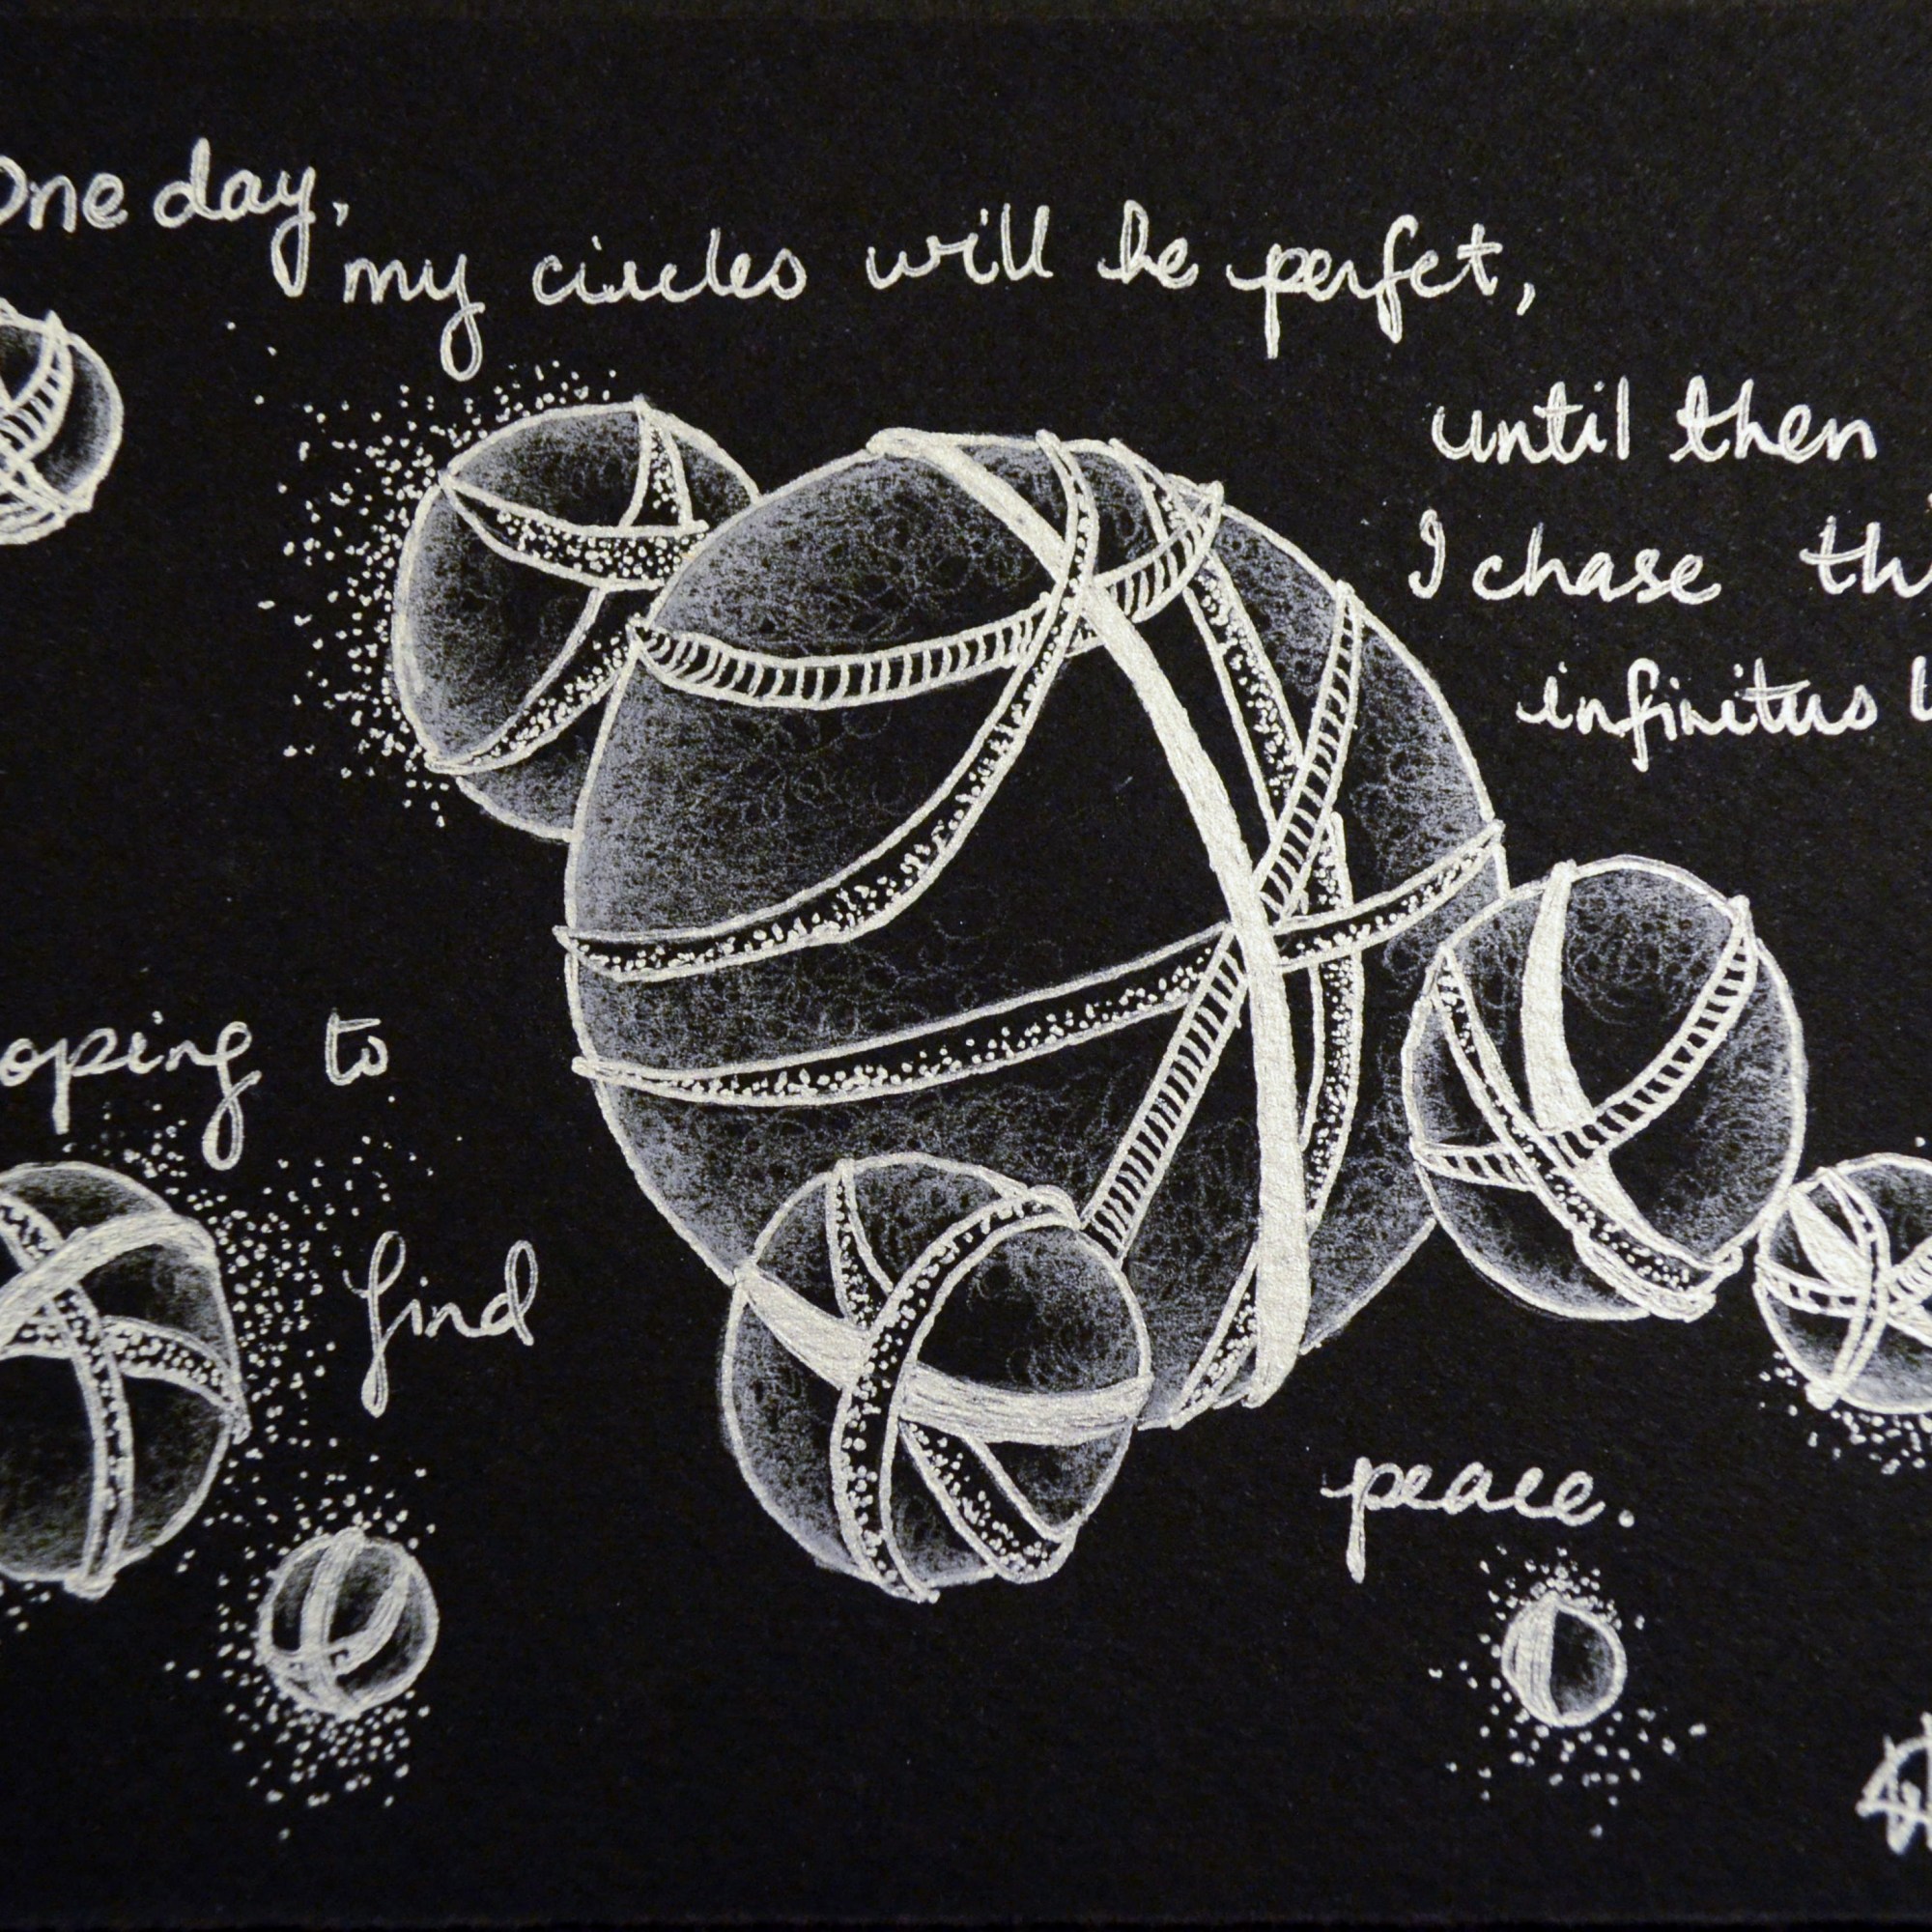 One day,
my circles will be perfct,
until then
I chase th
infinitus
oping to
find
peace.